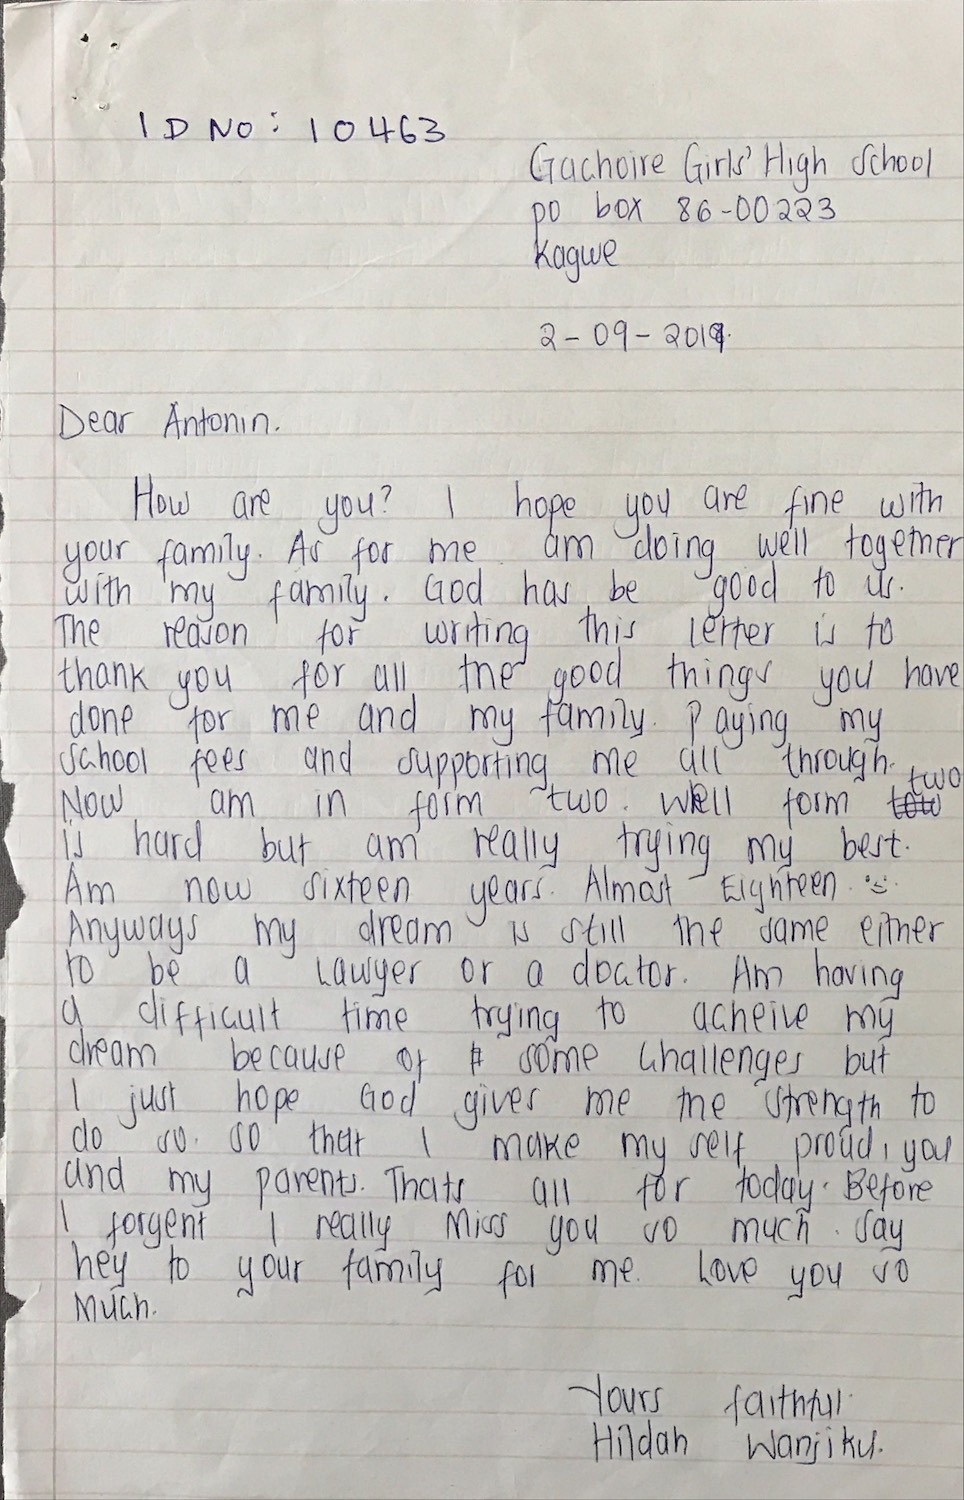 ID NO: 10463
Gachoire Girls' High School
po box 86-00223
Kagwe
2-09-2019.
Dear Antonin.
How are you? I hope you are fine with
your family. As for me am doing well together
with my family. God has be good to us.
The reason for writing this letter is to
thank you for all the good things you have
done for me and my family. Paying my
school fees and supporting me all through.
Now am in form two. Well form two
is hard but am really trying my best.
Am now sixteen years. Almost Eighteen.
Anyways my dream is still the same either
to be a Lawyer or a doctor. Am having
a difficult time trying to acheive my
dream because of some challenges but
I just hope God gives me the strength to
do so. so that I make my self proud, you
and my parents. Thats all for today. Before
I forgent I really Miss you so much. say
hey to your family for me. Love you so
Much.
Yours faithful
Hildah Wanjiku.